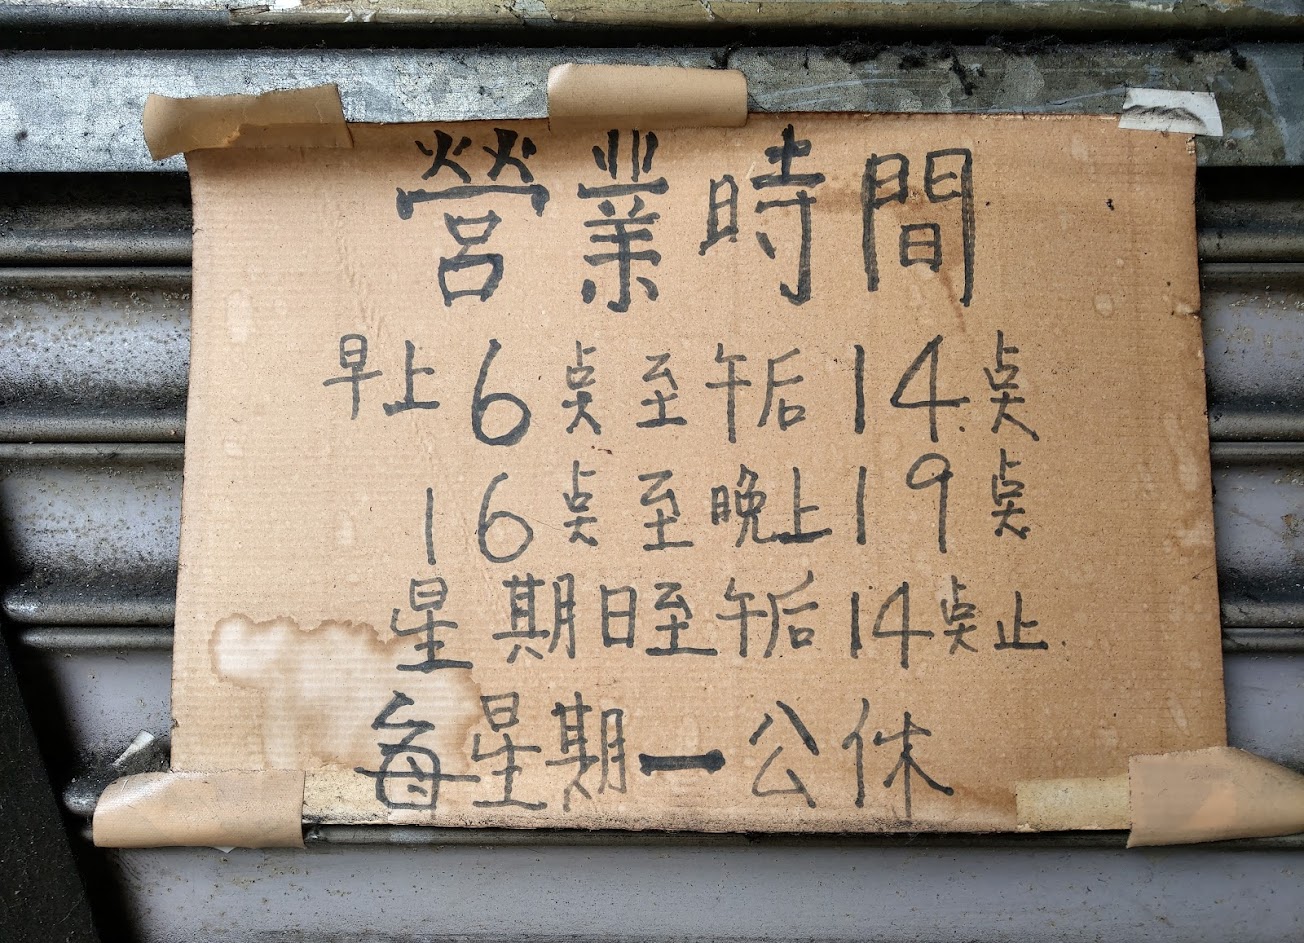 營業時間
早上6点至午后14点
16点至晚上19点
星期日至午后14点止.
每星期一公休